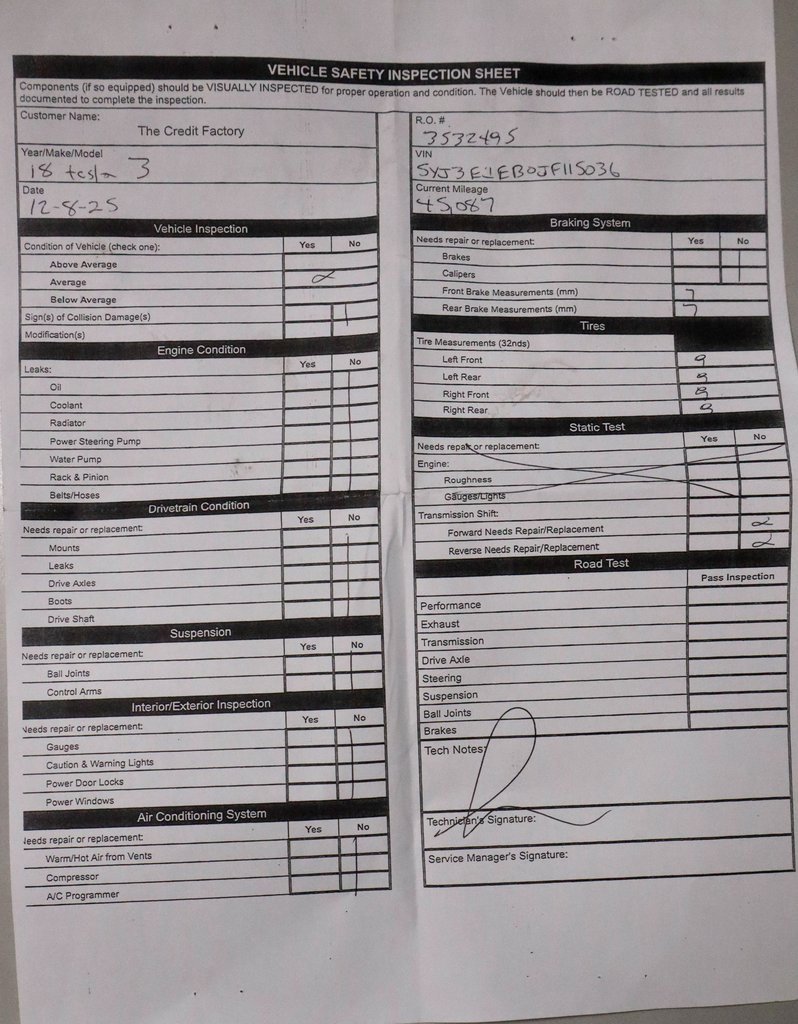 VEHICLE SAFETY INSPECTION SHEET
Components (if so equipped) should be VISUALLY INSPECTED for proper operation and condition. The Vehicle should then be ROAD TESTED and all results
documented to complete the inspection.
Customer Name:
The Credit Factory
Year/Make/Model
18 tesla 3
Date
12-8-25
Vehicle Inspection
Condition of Vehicle (check one): Yes No
Above Average
Average
Below Average
Sign(s) of Collision Damage(s)
Modification(s)
Engine Condition
Leaks: Yes No
Oil
Coolant
Radiator
Power Steering Pump
Water Pump
Rack & Pinion
Belts/Hoses
Drivetrain Condition
Needs repair or replacement: Yes No
Mounts
Leaks
Drive Axles
Boots
Drive Shaft
Suspension
Needs repair or replacement: Yes No
Ball Joints
Control Arms
Interior/Exterior Inspection
Needs repair or replacement: Yes No
Gauges
Caution & Warning Lights
Power Door Locks
Power Windows
Air Conditioning System
Needs repair or replacement: Yes No
Warm/Hot Air from Vents
Compressor
A/C Programmer
R.O. #
3532495
VIN
5YJ3E1EB0JF115036
Current Mileage
45,087
Braking System
Needs repair or replacement: Yes No
Brakes
Calipers
Front Brake Measurements (mm) 7
Rear Brake Measurements (mm) 7
Tires
Tire Measurements (32nds)
Left Front 9
Left Rear
Right Front
Right Rear
Static Test
Needs repair or replacement: Yes No
Engine:
Roughness
Gauges/Lights
Transmission Shift:
Forward Needs Repair/Replacement
Reverse Needs Repair/Replacement
Road Test
Pass Inspection
Performance
Exhaust
Transmission
Drive Axle
Steering
Suspension
Ball Joints
Brakes
Tech Notes:
Technician's Signature:
Service Manager's Signature: